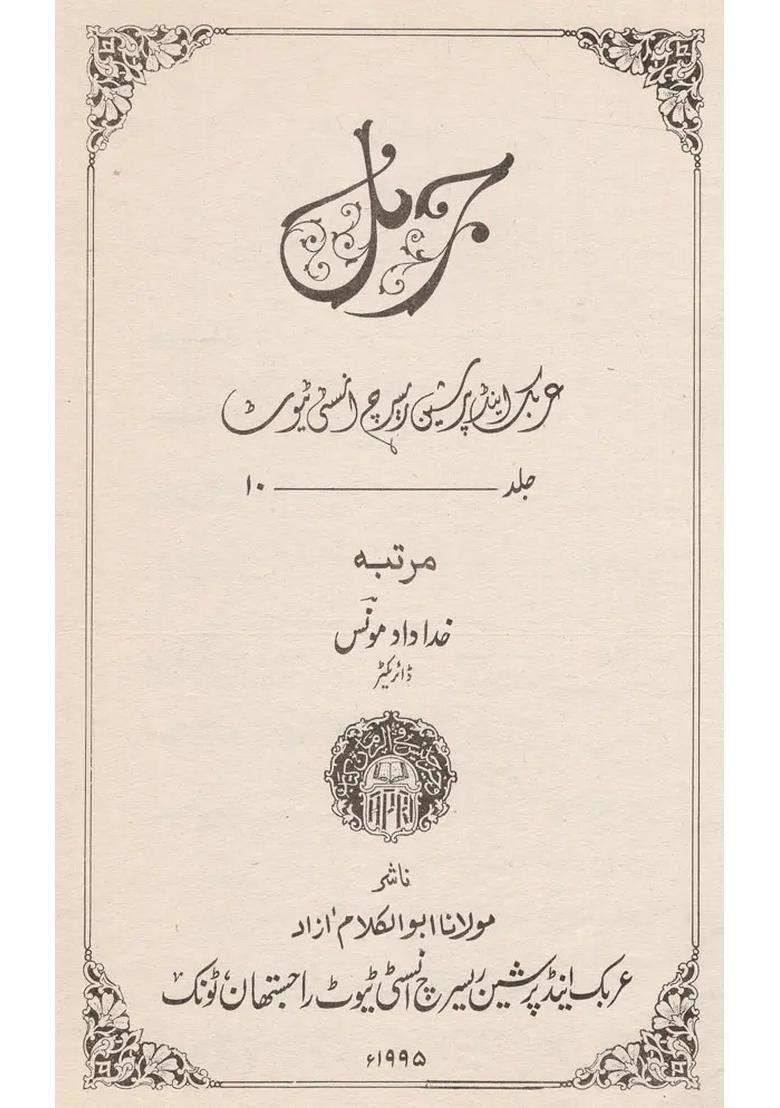 جرنل
عربک اینڈ پرشین ریسرچ انسٹی ٹیوٹ
جلد ــــــــــ ۱۰
مرتبہ
خداداد مونسؔ
ڈائریکٹر
APRI
ناشر
مولانا ابوالکلام آزاد
عربک اینڈ پرشین ریسرچ انسٹی ٹیوٹ راجستھان، ٹونک
۱۹۹۵ء